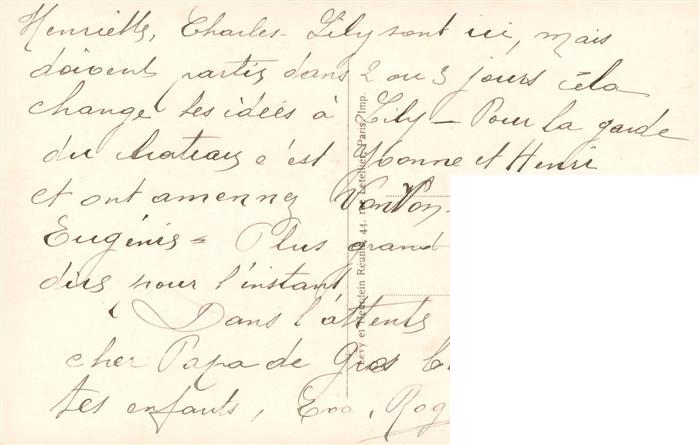 Henriette, Charles- Lily sont ici, mais
doivent partir dans 2 ou 3 jours céla
change les idées à Lily - Pour la garde
du chateau c'est Yvonne et Henri
et ont amenner VonVon-
Eugénie = Plus grand
dire pour l'instant
Dans l'attente
cher Papa de Gros
tes enfants, Eva, Rog
Levy et Neurdein Réunis, 44, rue Letellier, Paris Imp.